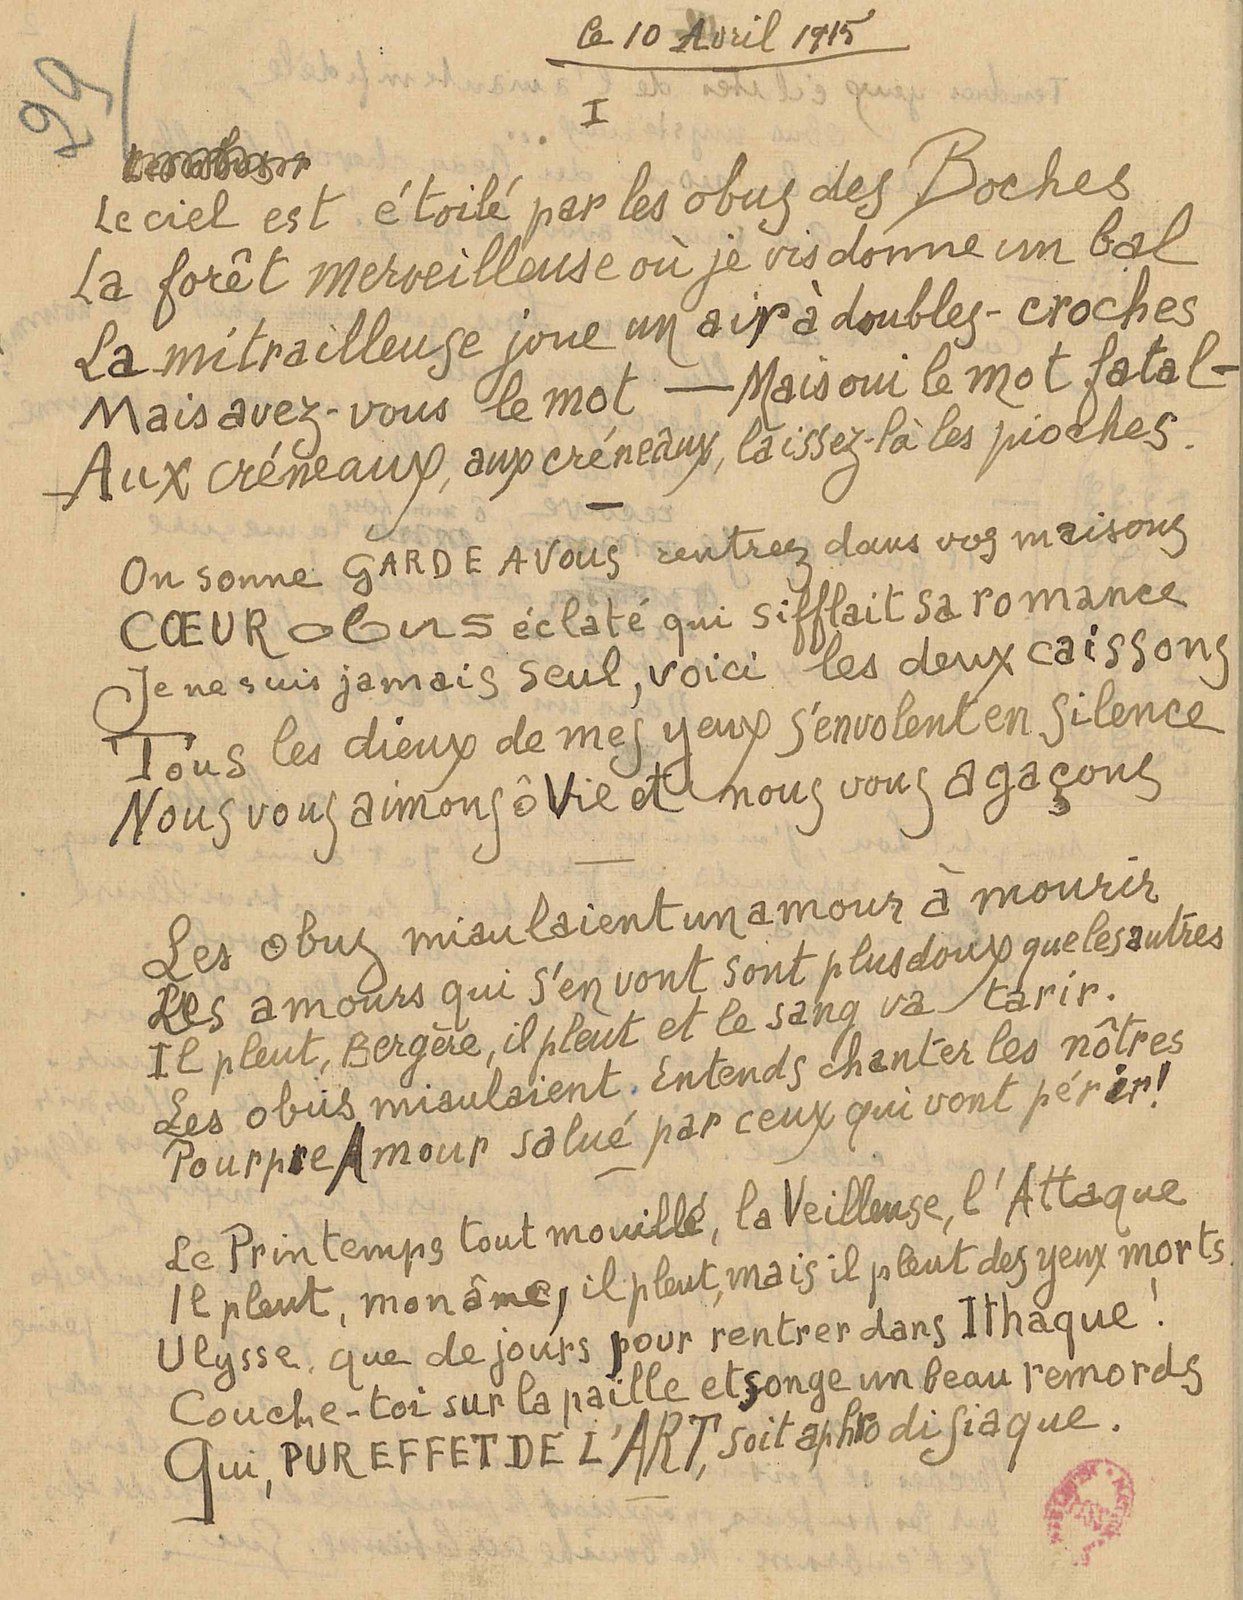 29
Le 10 Avril 1915
I
Le ciel est étoilé par les obus des Boches
La forêt merveilleuse où je vis donne un bal
La mitrailleuse joue un air à doubles-croches
Mais avez-vous le mot — Mais oui le mot fatal —
Aux créneaux, aux créneaux, laissez-là les pioches.
On sonne GARDE A VOUS rentrez dans vos maisons
CŒUR obus éclaté qui sifflait sa romance
Je ne suis jamais seul, voici les deux caissons
Tous les dieux de mes yeux s'envolent en silence
Nous vous aimons ô Vie et nous vous agaçons
Les obus miaulaient un amour à mourir
Les amours qui s'en vont sont plus doux que les autres
Il pleut, Bergère, il pleut et le sang va tarir.
Les obus miaulaient. Entends chanter les nôtres
Pourpre Amour salué par ceux qui vont périr!
Le Printemps tout mouillé, la Veilleuse, l'Attaque
Il pleut, mon âme, il pleut, mais il pleut des yeux morts.
Ulysse, que de jours pour rentrer dans Ithaque!
Couche-toi sur la paille et songe un beau remords
Qui, PUR EFFET DE L'ART, soit aphrodisiaque.